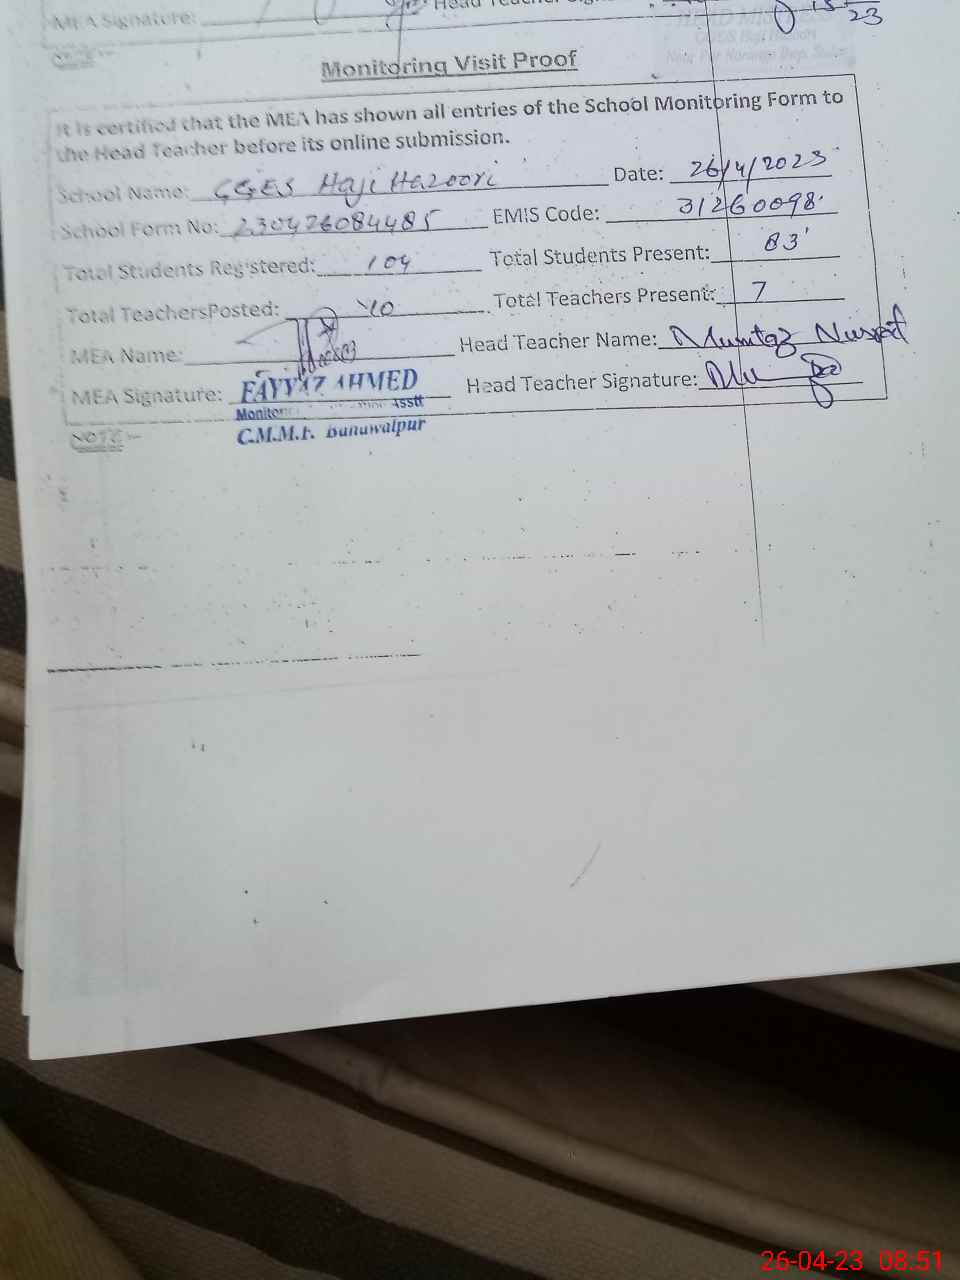 MEA Signature:
23
Monitoring Visit Proof
It is certified that the MEA has shown all entries of the School Monitoring Form to
the Head Teacher before its online submission.
School Name: GGES Haji Hazoori Date: 26/4/2023
School Form No: 230426084485 EMIS Code: 31260098
Total Students Registered: 104 Total Students Present: 83
Total TeachersPosted: 10 Total Teachers Present: 7
MEA Name: Head Teacher Name: Mumtaz Nusrat
MEA Signature: FAYYAZ AHMED Head Teacher Signature:
Asstt
C.M.M.F. Bahawalpur
NOTE:-
26-04-23 08:51